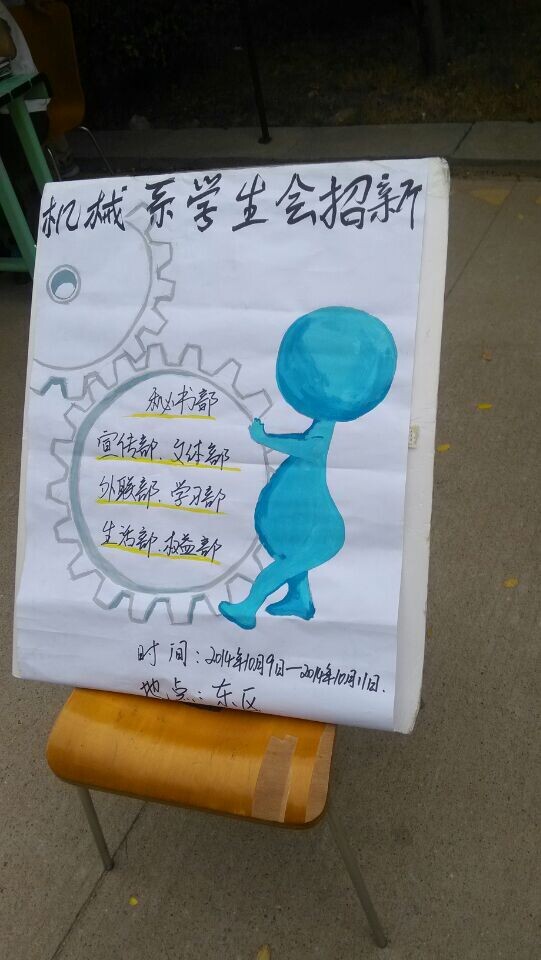 机械系学生会招新
秘书部
宣传部、文体部
外联部、学习部
生活部、权益部
时间:2014年10月9日—2014年10月11日.
地点:东区